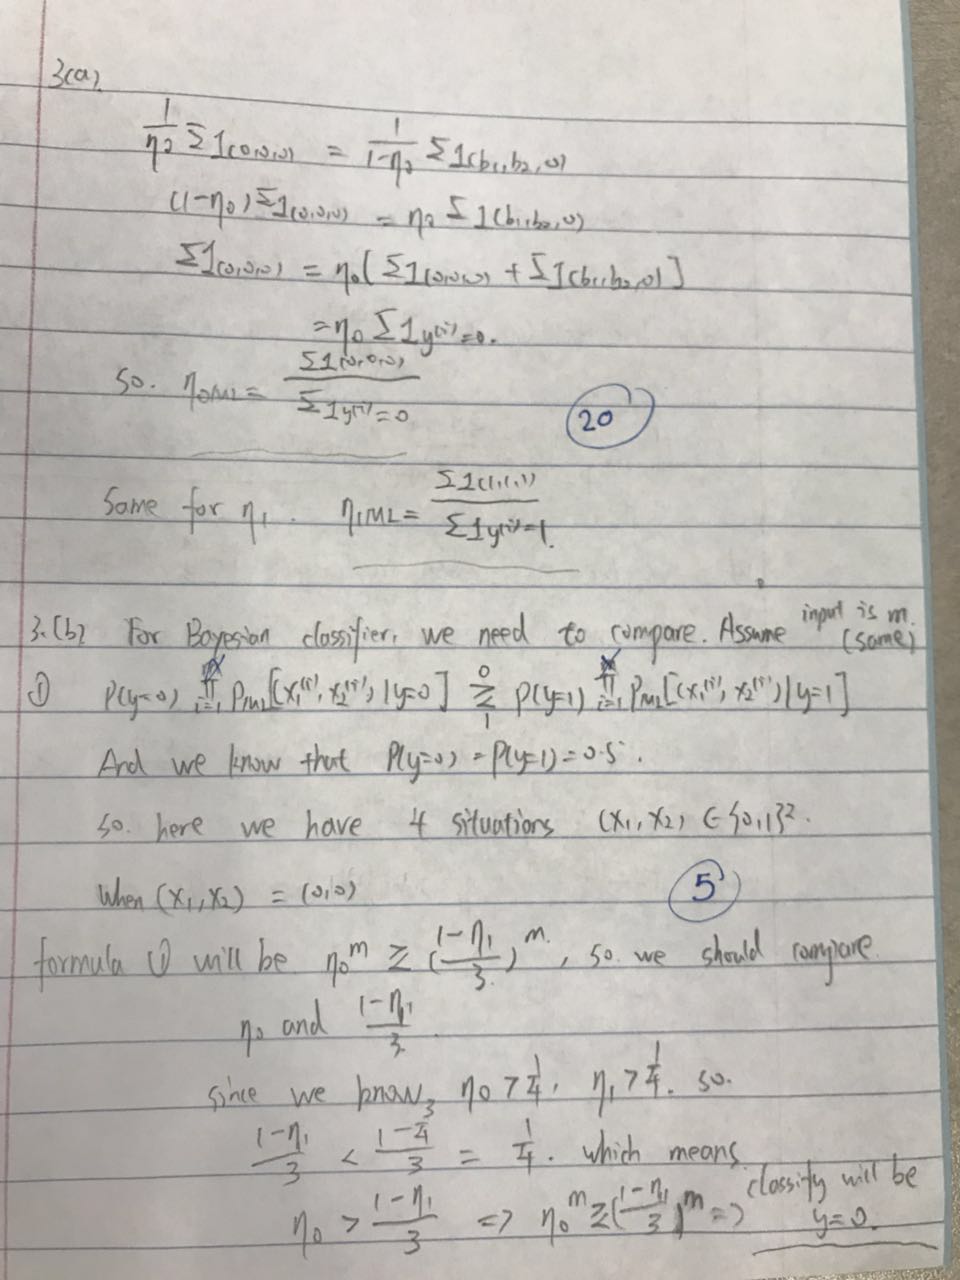 3(a).
1/η0 Σ1(0,0,0) = 1/(1-η0) Σ1(b1,b2,0)
(1-η0) Σ1(0,0,0) = η0 Σ1(b1,b2,0)
Σ1(0,0,0) = η0[Σ1(0,0,0) + Σ1(b1,b2,0)]
= η0 Σ1y(i)=0.
So. η0ML = Σ1(0,0,0) / Σ1y(i)=0
20
Same for η1. η1ML = Σ1(1,1,1) / Σ1y(i)=1.
3.(b) For Bayesian classifier, we need to compare. Assume input is m. (same)
① P(y=0) ∏i=1 PML[(x1(i), x2(i)) | y=0] ≷ 0 1 P(y=1) ∏i=1 PML[(x1(i), x2(i)) | y=1]
And we know that P(y=0) = P(y=1) = 0.5.
so. here we have 4 situations (x1, x2) ∈ {0,1}².
When (x1, x2) = (0,0)
5
formula ① will be η0^m ≷ ((1-η1)/3)^m, so we should compare.
η0 and (1-η1)/3.
since we know, η0 > 1/4, η1 > 1/4. so.
(1-η1)/3 < (1-1/4)/3 = 1/4. which means
η0 > (1-η1)/3 => η0^m ≥ ((1-η1)/3)^m => classify will be y=0.